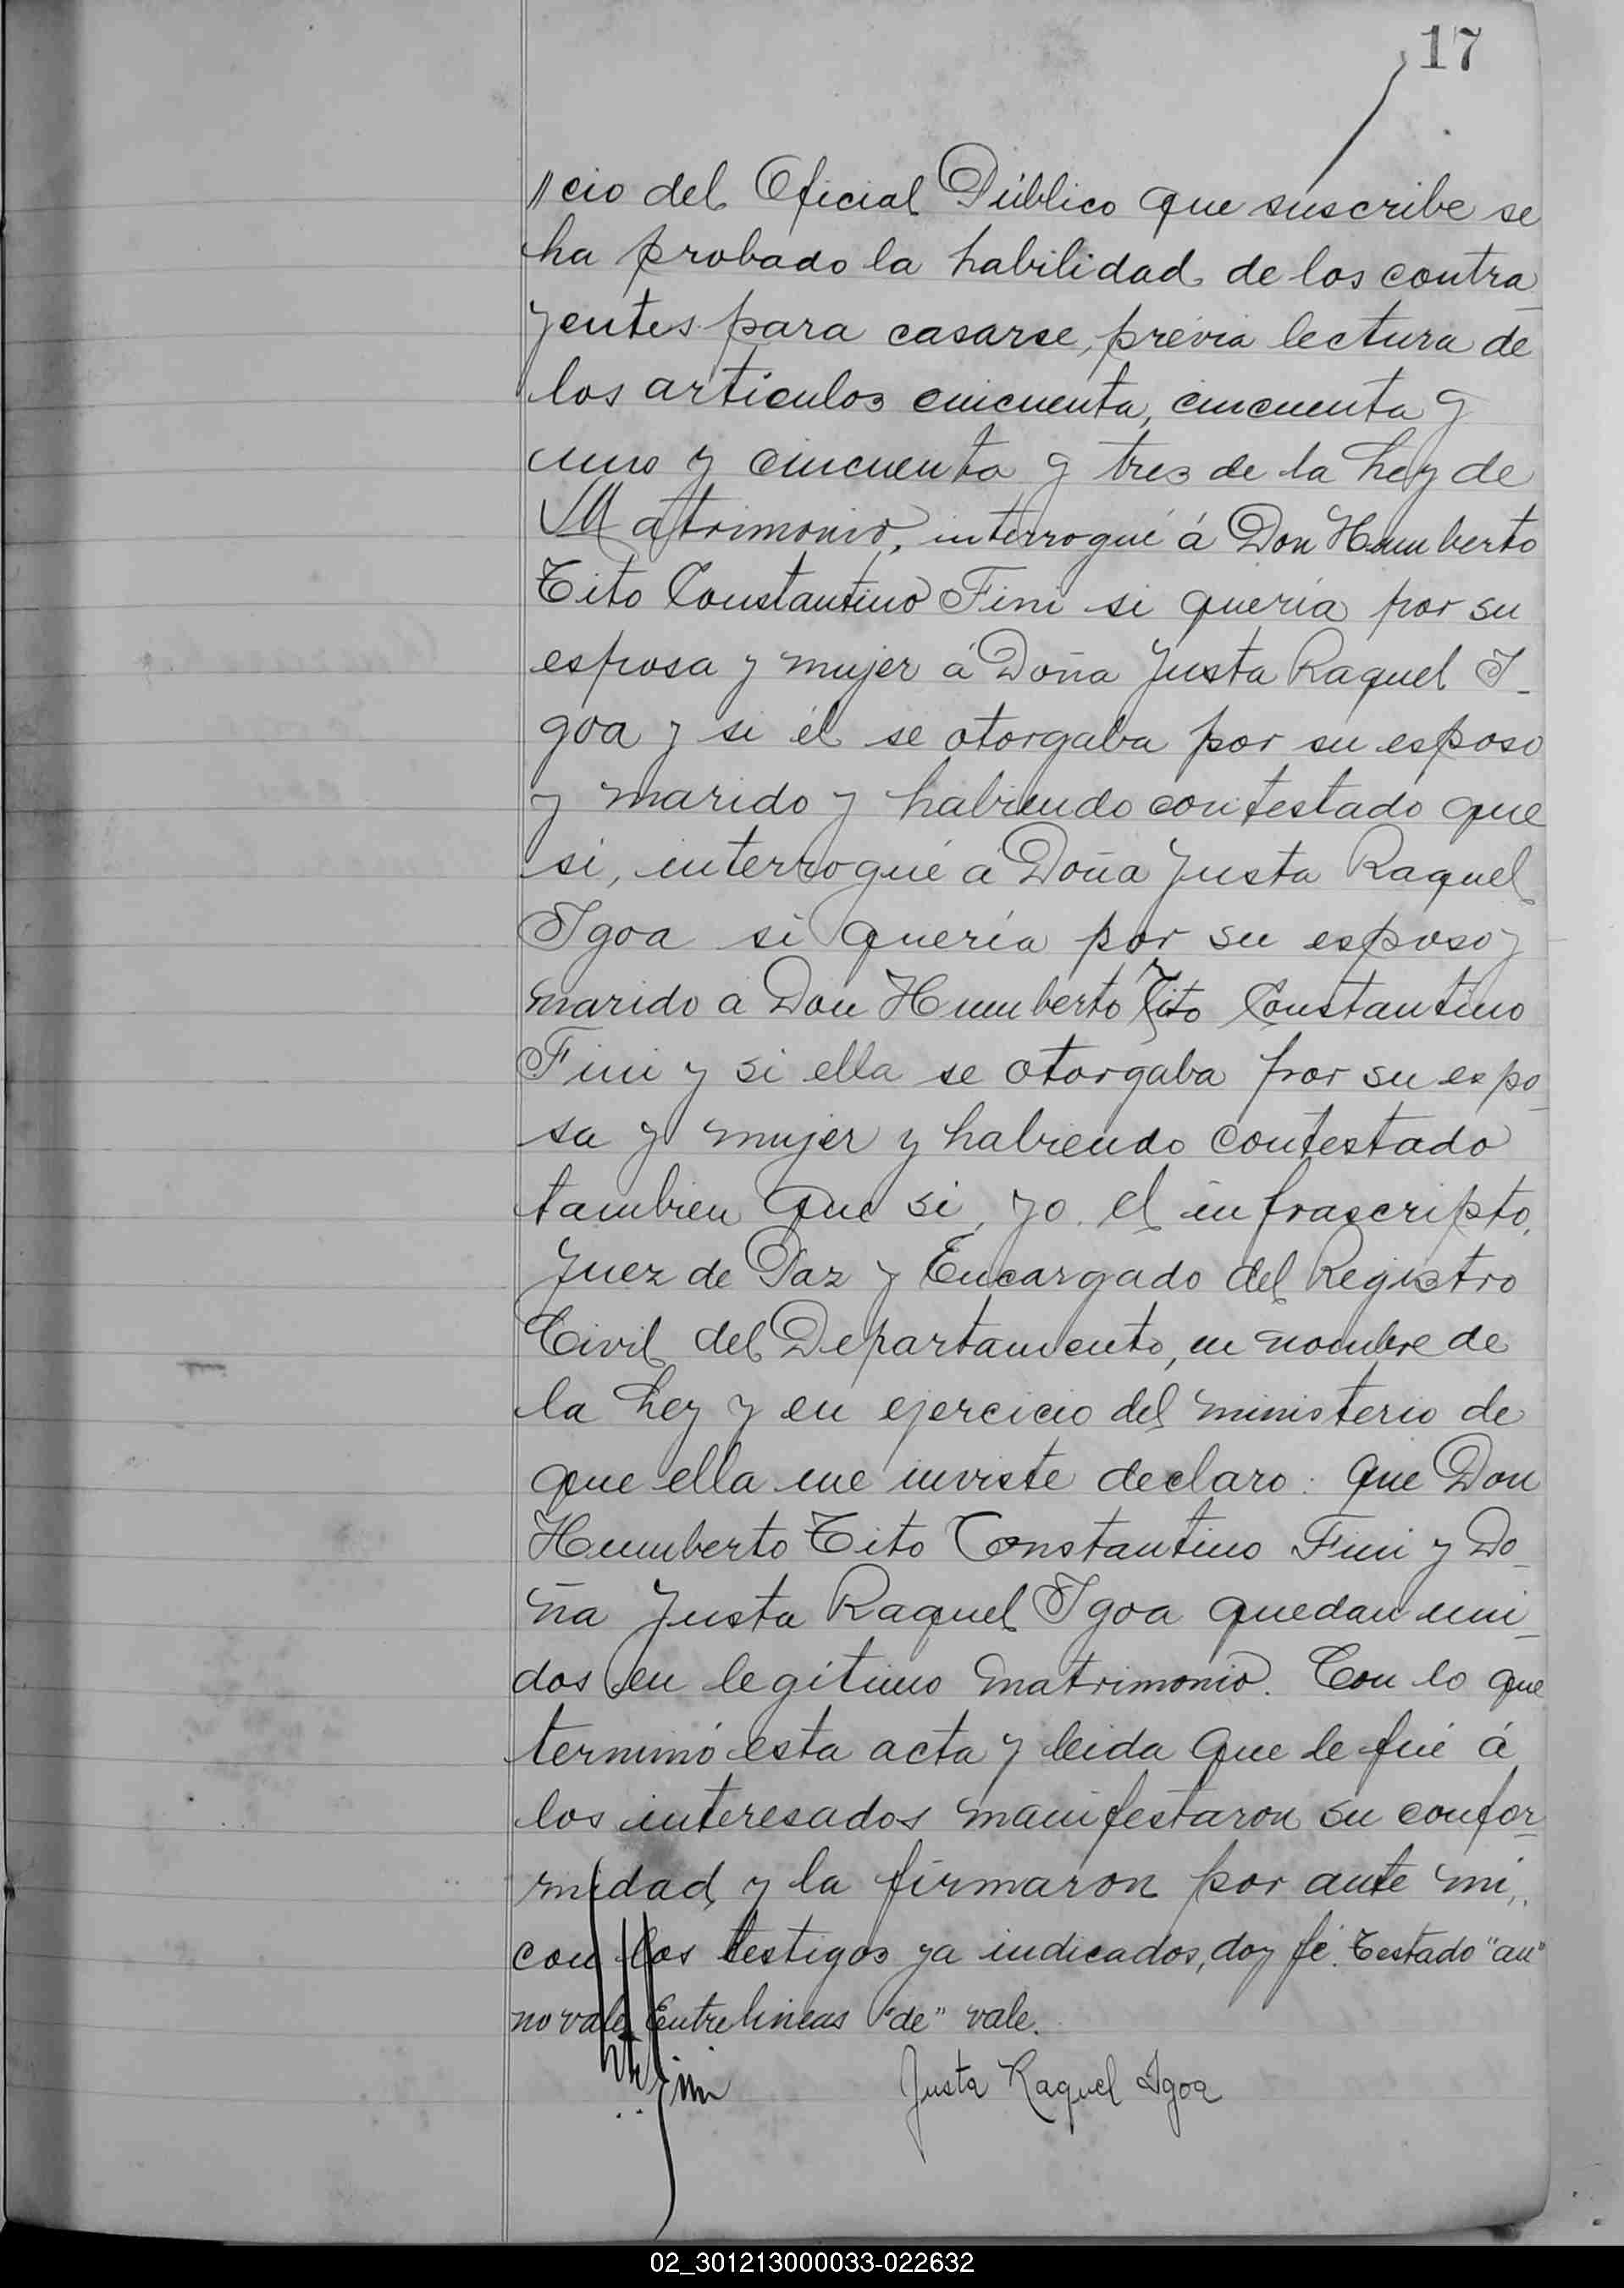 17
//cio del Oficial Público que suscribe se
ha probado la habilidad de los contra_
yentes para casarse, prévia lectura de
los artículos cincuenta, cincuenta y
uno y cincuenta y tres de la Ley de
Matrimonio, interrogué á Don Humberto
Tito Constantino Fini si quería por su
esposa y mujer á Doña Justa Raquel I_
goa y si él se otorgaba por su esposo
y marido y habiendo contestado que
si, interrogué á Doña Justa Raquel
Igoa si quería por su esposo y
marido a Don Humberto Tito Constantino
Fini y si ella se otorgaba por su espo_
sa y mujer y habiendo contestado
tambien que si, yo el infrascripto,
Juez de Paz y Encargado del Registro
Civil del Departamento, en nombre de
la Ley y en ejercicio del ministerio de
que ella me inviste declaro: que Don
Humberto Tito Constantino Fini y Do_
ña Justa Raquel Igoa quedan uni_
dos en legítimo matrimonio. Con lo que
terminó esta acta y leida que le fué á
los interesados manifestaron su confor_
midad, y la firmaron por ante mi,
con los testigos ya indicados, doy fé. Testado "an"
no vale. Entrelineas "de" vale.
Fini Justa Raquel Igoa
02_301213000033-022632